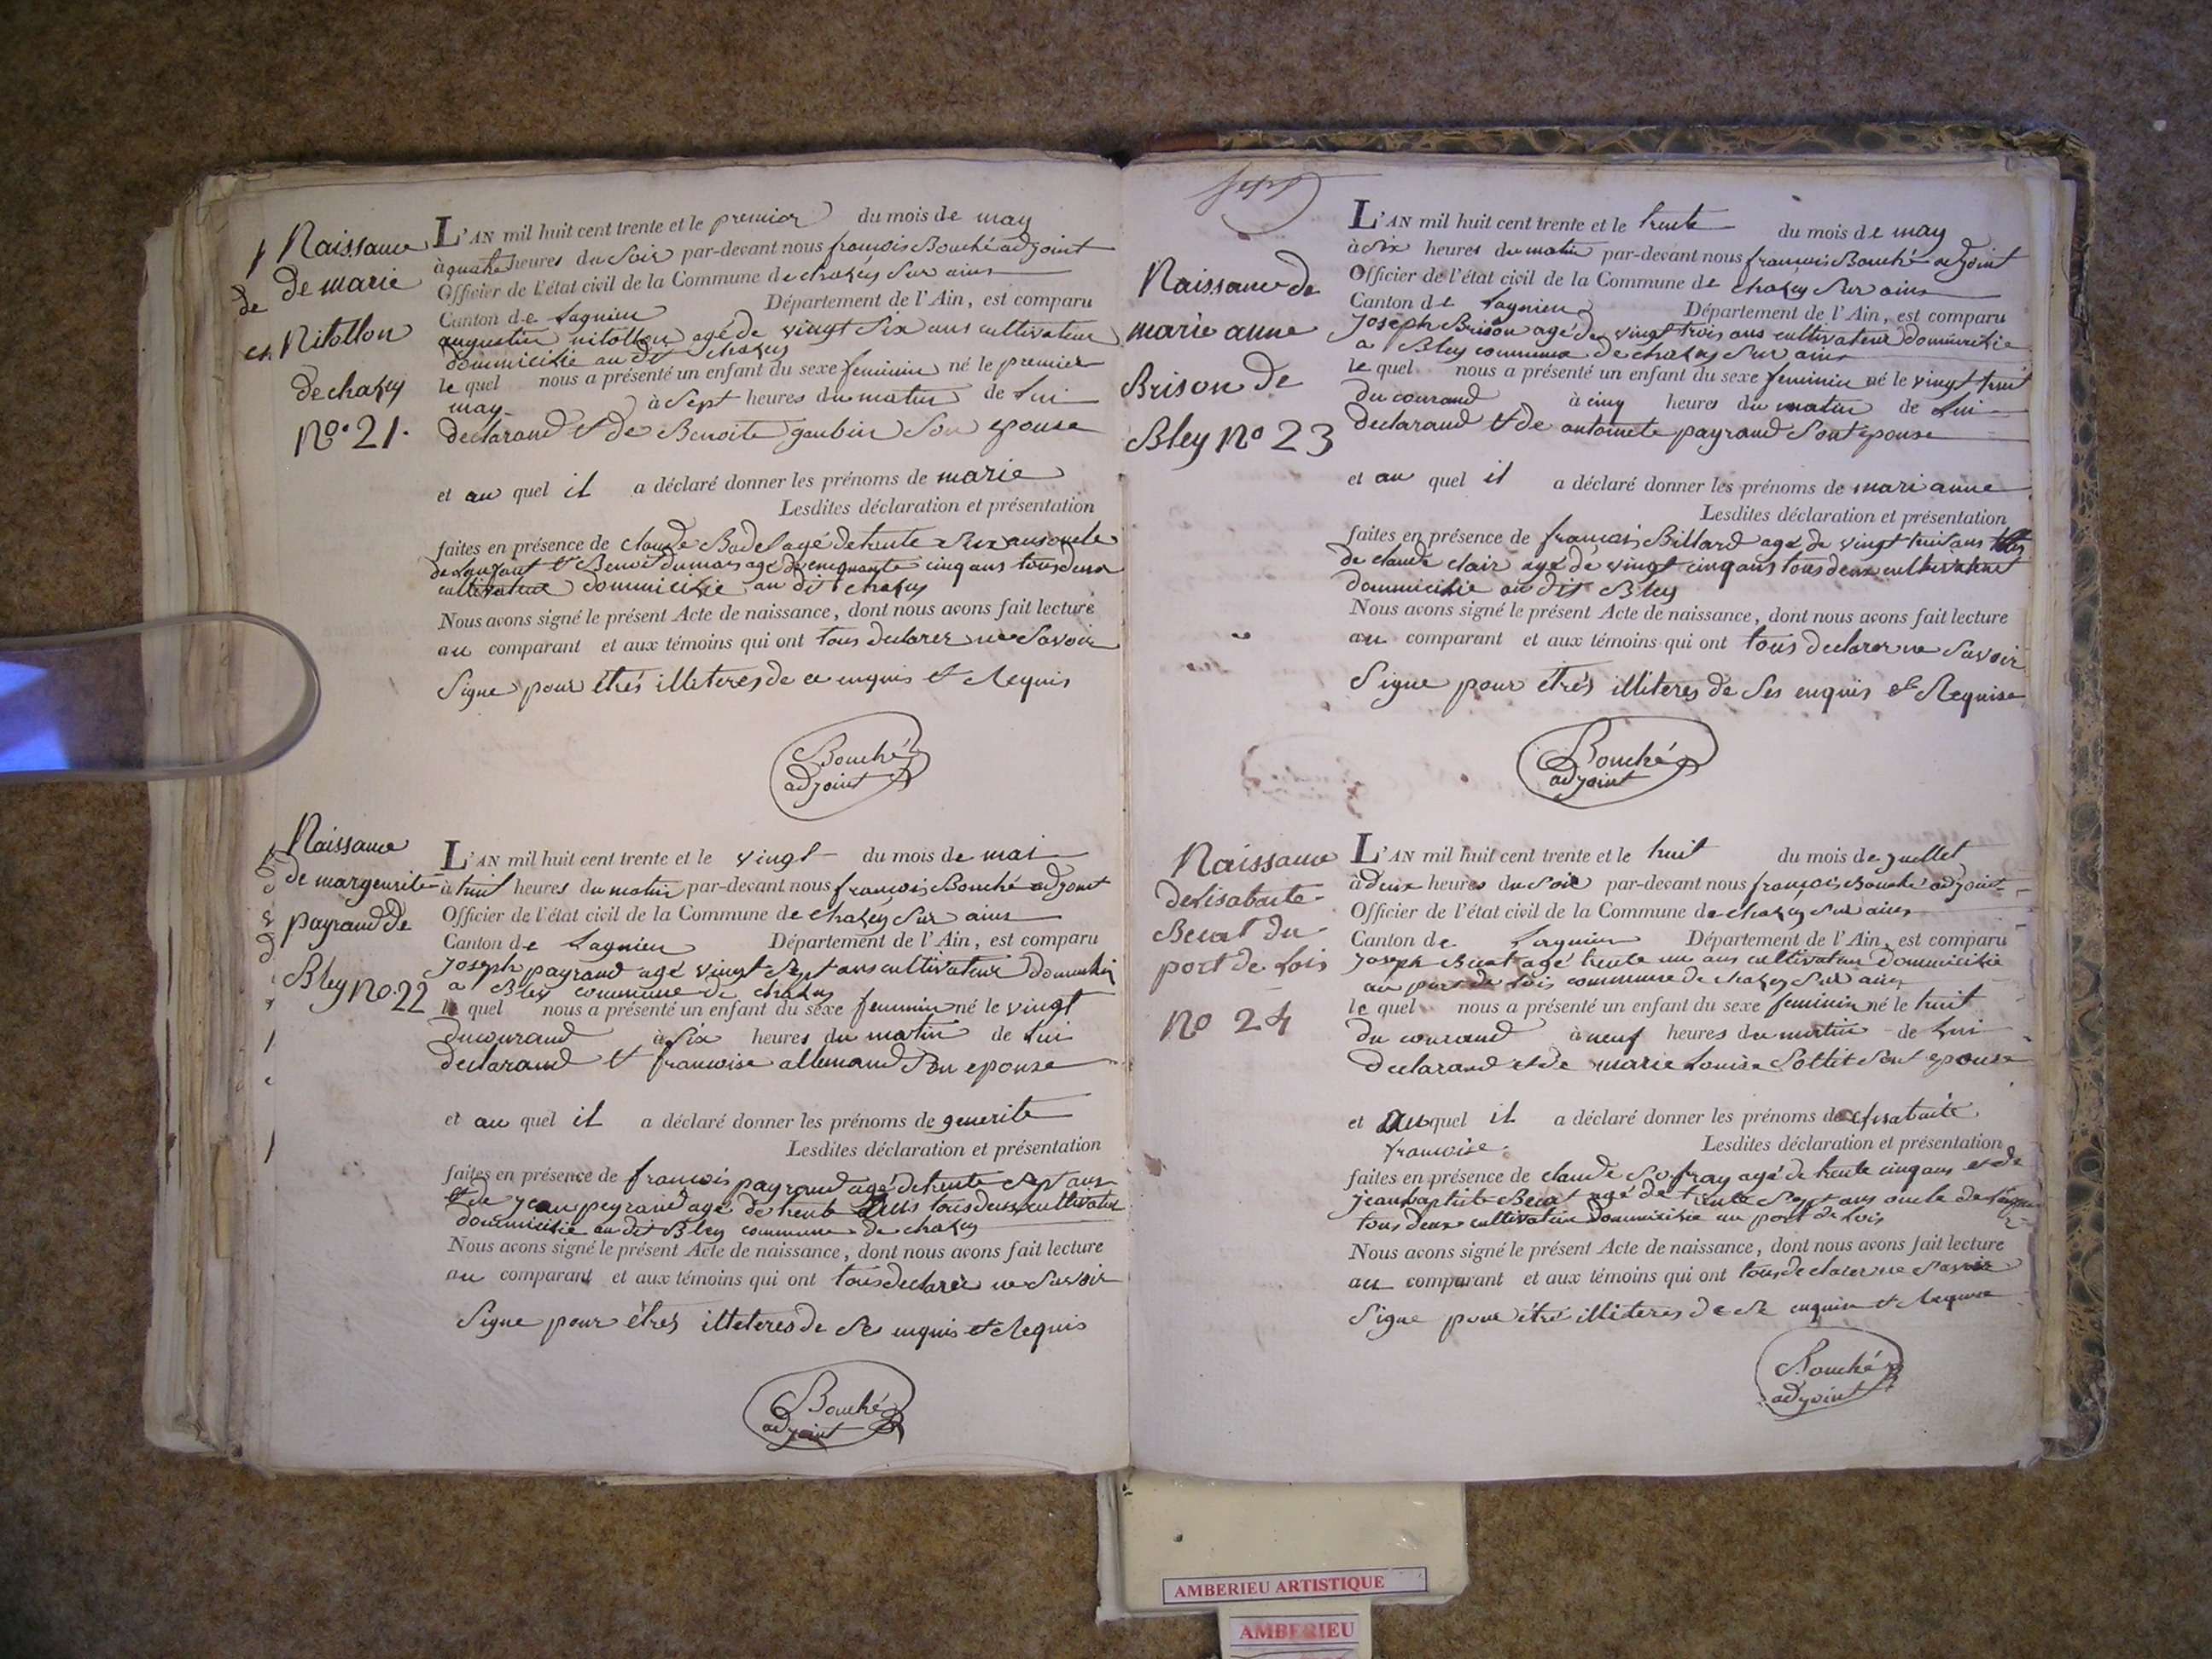 Naissance
de marie
Nitollon
de chazey
No. 21.
L'AN mil huit cent trente et le premier du mois de may
à quatre heures du Soir par-devant nous françois Bouché adjoint
Officier de l'état civil de la Commune de chazey Sur ains
Canton de Lagnieu Département de l'Ain, est comparu
augustin nitollon agé de vingt Six ans cultivateur
dommicilié au dit chazey
le quel nous a présenté un enfant du sexe feminin né le premier
may à Sept heures du matin de Lui
declarand et de Benoite gaubin Son epouse
et au quel il a déclaré donner les prénoms de marie
Lesdites déclaration et présentation
faites en présence de claude Badel agé de trente Six ans oncle
de Lenfant et Benoit dumas agé de cinquante cinq ans tous deux
cultivateur dommicilié au dit chazey
Nous avons signé le présent Acte de naissance, dont nous avons fait lecture
au comparant et aux témoins qui ont tous declarer ne Savoir
Signe pour êtres illiteres de ce enquis et Requis
Bouché
adjoint
Naissance
de margeurite
payraud de
Bley No. 22
L'AN mil huit cent trente et le vingt du mois de mai
à huit heures du matin par-devant nous françois Bouché adjoint
Officier de l'état civil de la Commune de chazey Sur ains
Canton de Lagnieu Département de l'Ain, est comparu
Joseph payraud agé vingt Sept ans cultivateur
a Bley commune de chazey
le quel nous a présenté un enfant du sexe feminin né le vingt
du courand à Six heures du matin de Lui
declarand et francoise allemand Son epouse
et au quel il a déclaré donner les prénoms de generite
Lesdites déclaration et présentation
faites en présence de francois payraud agé de trente Sept ans
et de Jean peyraud agé de trente tous deux cultivateur
dommicilié au dit Bley commune de chazey
Nous avons signé le présent Acte de naissance, dont nous avons fait lecture
au comparant et aux témoins qui ont tous declarer ne Savoir
Signe pour êtres illeteres de Ses enquis et Requis
Bouché
adjoint
Naissance de
marie anne
Brison de
Bley No 23
L'AN mil huit cent trente et le trente du mois de may
à Six heures du matin par-devant nous francois Bouché adjoint
Officier de l'état civil de la Commune de chazey Sur ains
Canton de Lagnieu Département de l'Ain, est comparu
Joseph Brison agé de vingt trois ans cultivateur dommicilie
a Bley commune de chazey Sur ains
le quel nous a présenté un enfant du sexe feminin né le vingt huit
du courand à cinq heures du matin de Lui
declarand et de antoinete payraud Sont epouse
et au quel il a déclaré donner les prénoms de mari anne
Lesdites déclaration et présentation
faites en présence de francois Billard agé de vingt huit ans
de claude clair agé de vingt cinq ans tous deux cultivateur
dommicilie au dit Bley
Nous avons signé le présent Acte de naissance, dont nous avons fait lecture
au comparant et aux témoins qui ont tous declarer ne Savoir
Signe pour êtres illiteres de Ses enquis et Requise
Bouché
adjoint
Naissance
delisabaite
Beuat du
port de Lois
No 24
L'AN mil huit cent trente et le huit du mois de Juellet
à deux heures du Soir par-devant nous françois Bouché adjoint
Officier de l'état civil de la Commune de chazey Sur ains
Canton de Lagnieu Département de l'Ain, est comparu
Joseph Beuat agé trente un ans cultivateur dommicilie
au port de Lois commune de chazey Sur ains
le quel nous a présenté un enfant du sexe feminin né le huit
du courand à neuf heures du matin de Lui
declarand et de marie Louise Sont epouse
et au quel il a déclaré donner les prénoms de
francoise. Lesdites déclaration et présentation
faites en présence de claude agé de trente cinq ans et de
Jean baptiste Beuat agé de trente Sept ans oncle de
tous deux cultivateur dommicilie au port de Lois
Nous avons signé le présent Acte de naissance, dont nous avons fait lecture
au comparant et aux témoins qui ont tous declarer ne Savoir
Signe pour être illiteres de Se enquis et Requise
Bouché
adjoint
AMBERIEU ARTISTIQUE
AMBERIEU